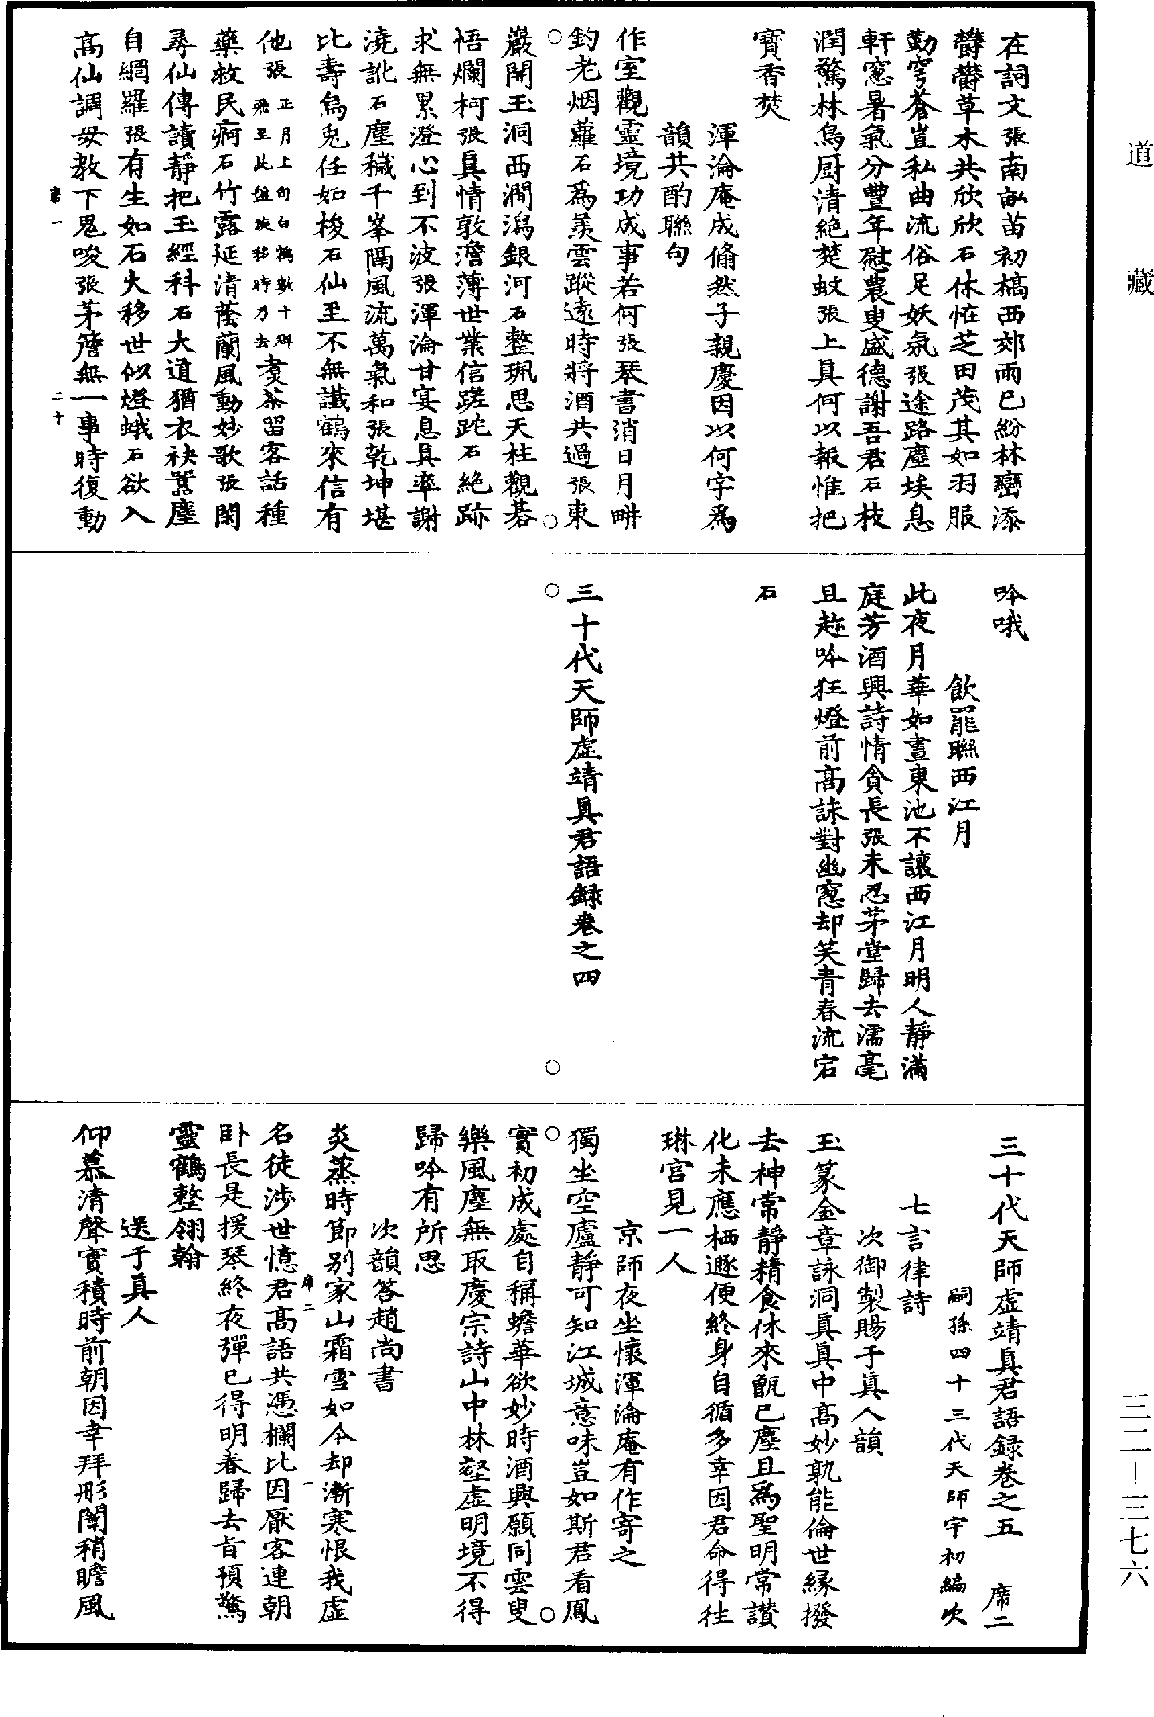 道藏
在詞文張南畝苗初槁西郊雨已紛林巒添
欝欝草木共欣欣石休恠芝田茂其如羽服
勤穹蒼豈私曲流俗足妖氛張途路塵埃息
軒窓暑氣分豐年慰農叟盛德謝吾君石枝
潤驚林鳥厨清絶楚蚊張上真何以報惟把
寶香焚
渾淪庵成翛然子親慶因以何字爲
韻共酌聯句
作室觀靈境功成事若何張琴書消日月耕
釣老烟蘿石爲羨雲蹤遠時將酒共過張東
巖開玉洞西澗瀉銀河石整珮思天柱觀碁
悟爛柯張真情敦澹薄世業信蹉跎石絶跡
求無累澄心到不波張渾淪甘宴息真率謝
澆訛石塵穢千峯隔風流萬氣和張乾坤堪
比壽烏兔任如梭石仙至不無讖鶴來信有
他張正月上旬白鶴數十㪽飛至此盤旋移時乃去煮茶留客話種
藥救民痾石竹露延清蔭蘭風動妙歌張閑
尋仙傳讀靜把玉經科石大道猶衣袂囂塵
自網羅張有生如石火移世似燈蛾石欲入
高仙調毋教下鬼唆張茅簷無一事時復動
席一
二十
吟哦
飲罷聯西江月
此夜月華如晝東池不讓西江月明人靜滿
庭芳酒興詩情貪長張未忍茅堂歸去濡毫
且趂吟狂燈前高詠對幽窓却笑青春流宕
石
三十代天師虛靖真君語錄卷之四
三十代天師虛靖真君語錄卷之五 席二
嗣孫四十三代天師宇初編次
七言律詩
次御製賜于真人韻
玉篆金章詠洞真真中高妙孰能倫世緣撥
去神常靜精食休來甑已塵且爲聖明常讃
化未應栖遯便終身自循多幸因君命得往
琳宫見一人
京師夜坐懷渾淪庵有作寄之
獨坐空廬靜可知江城意味豈如斯君看鳳
實初成處自稱蟾華欲妙時酒興願同雲叟
樂風塵無取慶宗詩山中林壑虛明境不得
歸吟有所思
次韻答趙尚書
炎蒸時節别家山霜雪如今却漸寒恨我虛
名徒涉世憶君高語共憑欄比因厭客連朝
卧長是援琴終夜彈已得明春歸去旨預驚
靈鶴整翎翰
席二
一
送于真人
仰慕清聲實積時前朝因幸拜彤闈稍瞻風
三二—三七六